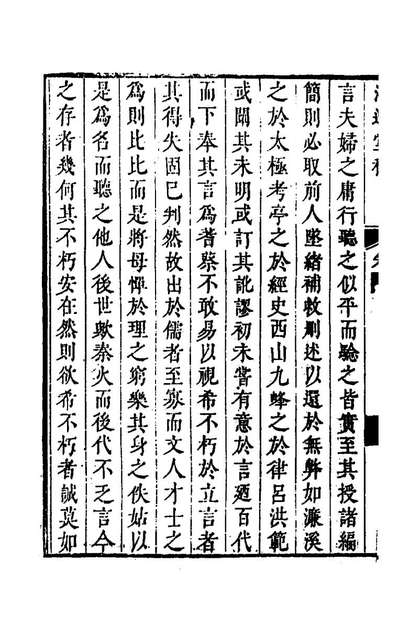 言夫婦之庸行聽之似平而驗之皆實至其授諸編
簡則必取前人墜緒補救刪述以還於無弊如濂溪
之於太極考亭之於經史西山九峰之於律呂洪範
或闡其未明或訂其訛謬初未嘗有意於言迺百代
而下奉其言為蓍蔡不敢易以視希不朽於立言者
其得失固已判然故出於儒者至寡而文人才士之
為則比比而是將毋憚於理之窮樂其身之佚姑以
是為名而聽之他人後世歟秦火而後代不乏言今
之存者幾何其不朽安在然則欲希不朽者誠莫如